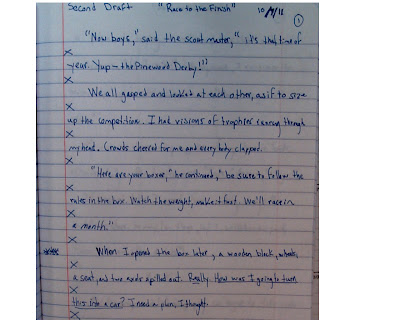 Second Draft "Race to the Finish" 10/11/11
1
"Now boys," said the scout master, "it's that time of
year. Yup – the Pinewood Derby!"
We all gasped and looked at each other, as if to size
up the competition. I had visions of trophies running through
my head. Crowds cheered for me and everybody clapped.
"Here are your boxes," he continued, "be sure to follow the
rules in the box. Watch the weight, make it fast. We'll race in
a month."
When I opened the box later, a wooden block, wheels,
a seat, and two axels spilled out. Really. How was I going to turn
this into a car? I need a plan, I thought.